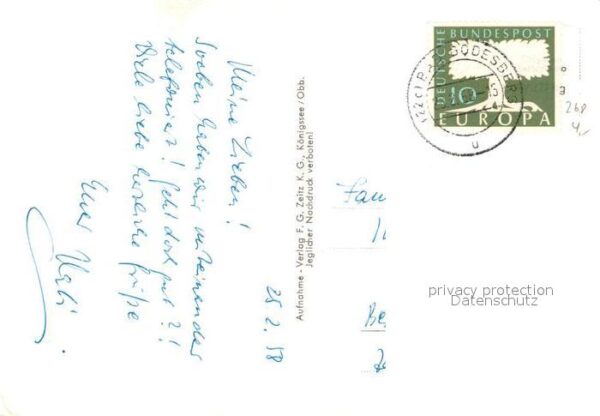 Meine Lieben!
Soeben haben wir miteinander
telefoniert! Geht doch gut?!
Viele liebe herzliche Grüße
Euer
25.2.58
Aufnahme - Verlag F. G. Zeitz K. G., Königssee / Obb.
Jeglicher Nachdruck verboten!
DEUTSCHE BUNDESPOST
10
EUROPA
BAD GODESBERG
u
Fam
privacy protection
Datenschutz